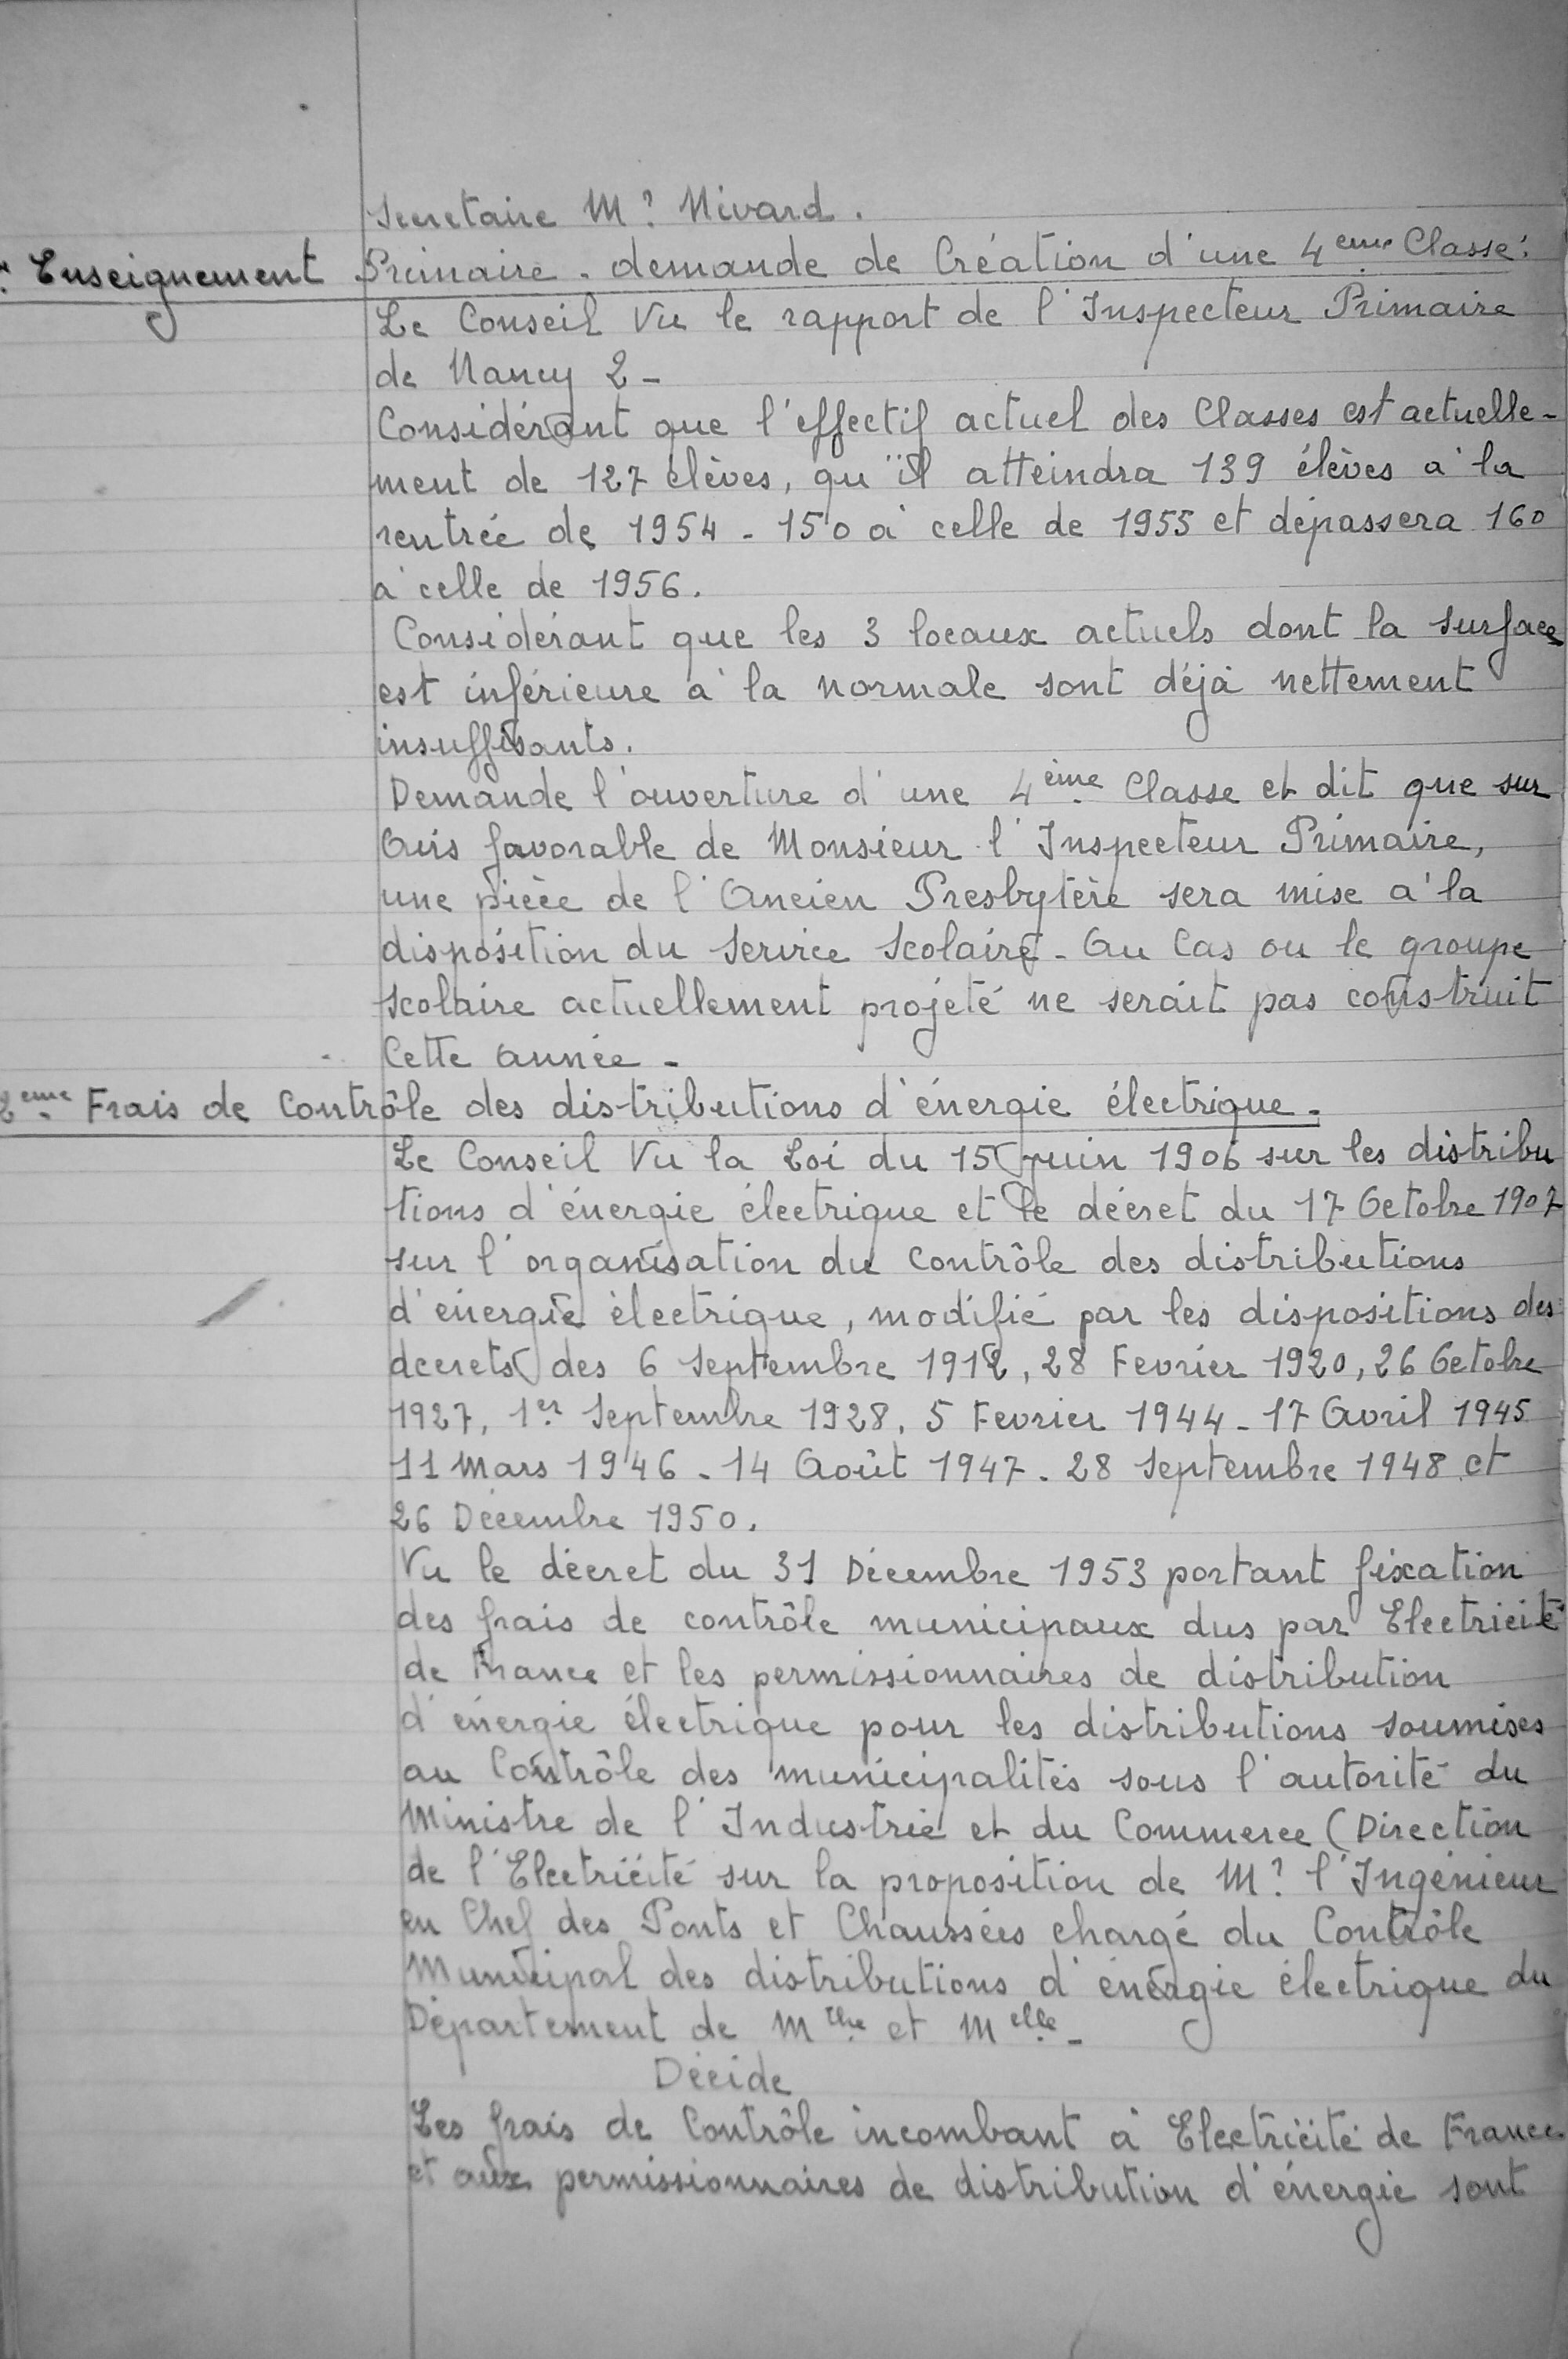 Secretaire Mr Nivard.
Enseignement Primaire. demande de Création d'une 4eme Classe:
Le Conseil Vu le rapport de l'Inspecteur Primaire
de Nancy 2-
Considérant que l'effectif actuel des Classes est actuelle-
ment de 127 élèves, qu'il atteindra 139 élèves à la
rentrée de 1954 - 150 à celle de 1955 et dépassera 160
à celle de 1956.
Considérant que les 3 locaux actuels dont la surface
est inférieure à la normale sont déjà nettement
insuffisants.
Demande l'ouverture d'une 4ème Classe et dit que sur
Avis favorable de Monsieur l'Inspecteur Primaire,
une pièce de l'Ancien Presbytère sera mise à la
disposition du Service Scolaire - Au Cas ou le groupe
Scolaire actuellement projeté ne serait pas construit
Cette Année -
2eme Frais de Contrôle des distributions d'énergie électrique.
Le Conseil Vu la Loi du 15 juin 1906 sur les distribu
tions d'énergie électrique et le décret du 17 Octobre 1907
sur l'organisation du Contrôle des distributions
d'énergie électrique, modifié par les dispositions des
decrets des 6 Septembre 1912, 28 Fevrier 1920, 26 Octobre
1927, 1er Septembre 1928, 5 Fevrier 1944 - 17 Avril 1945
11 Mars 1946 - 14 Août 1947 - 28 Septembre 1948 et
26 Décembre 1950.
Vu le décret du 31 Décembre 1953 portant fixation
des frais de contrôle municipaux dus par Electricité
de France et les permissionnaires de distribution
d'énergie électrique pour les distributions soumises
au Contrôle des municipalités sous l'autorité du
Ministre de l'Industrie et du Commerce (Direction
de l'Electricité sur la proposition de Mr l'Ingénieur
en Chef des Ponts et Chaussées chargé du Contrôle
Municipal des distributions d'énergie électrique du
Département de Mthe et Melle -
Décide
Les frais de Contrôle incombant à Electricité de France
et aux permissionnaires de distribution d'énergie sont